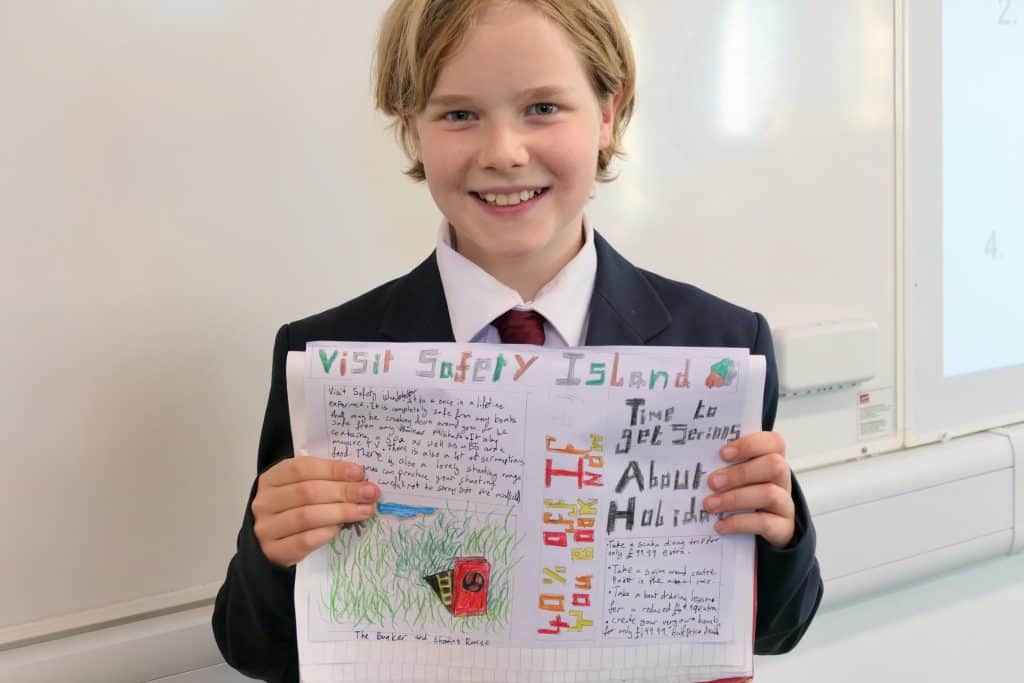 Visit Safety Island
Visit Safety island. It is a once in a lifetime
experience. It is completely safe from any bombs
that may be crashing down around you or be
safe from any nuclear Mishaps. It also
contains a spa as well as a BBQ and a
massive TV. There is also a lot of scrumptious
food. There is also a lovely shooting range
you can practice your shooting
careful not to stray into the
The Bunker and Shooting Range
40% off if
you Book now
Time to
get Serious
About
Holiday
• Take a scuba diving trip for
only £99.99 extra.
• Take a swim around centre
Point is the
• Take a boat driving lessons
for a reduced extra
• create your very own bombs
for only £199.99. Half price deal
2.
4.